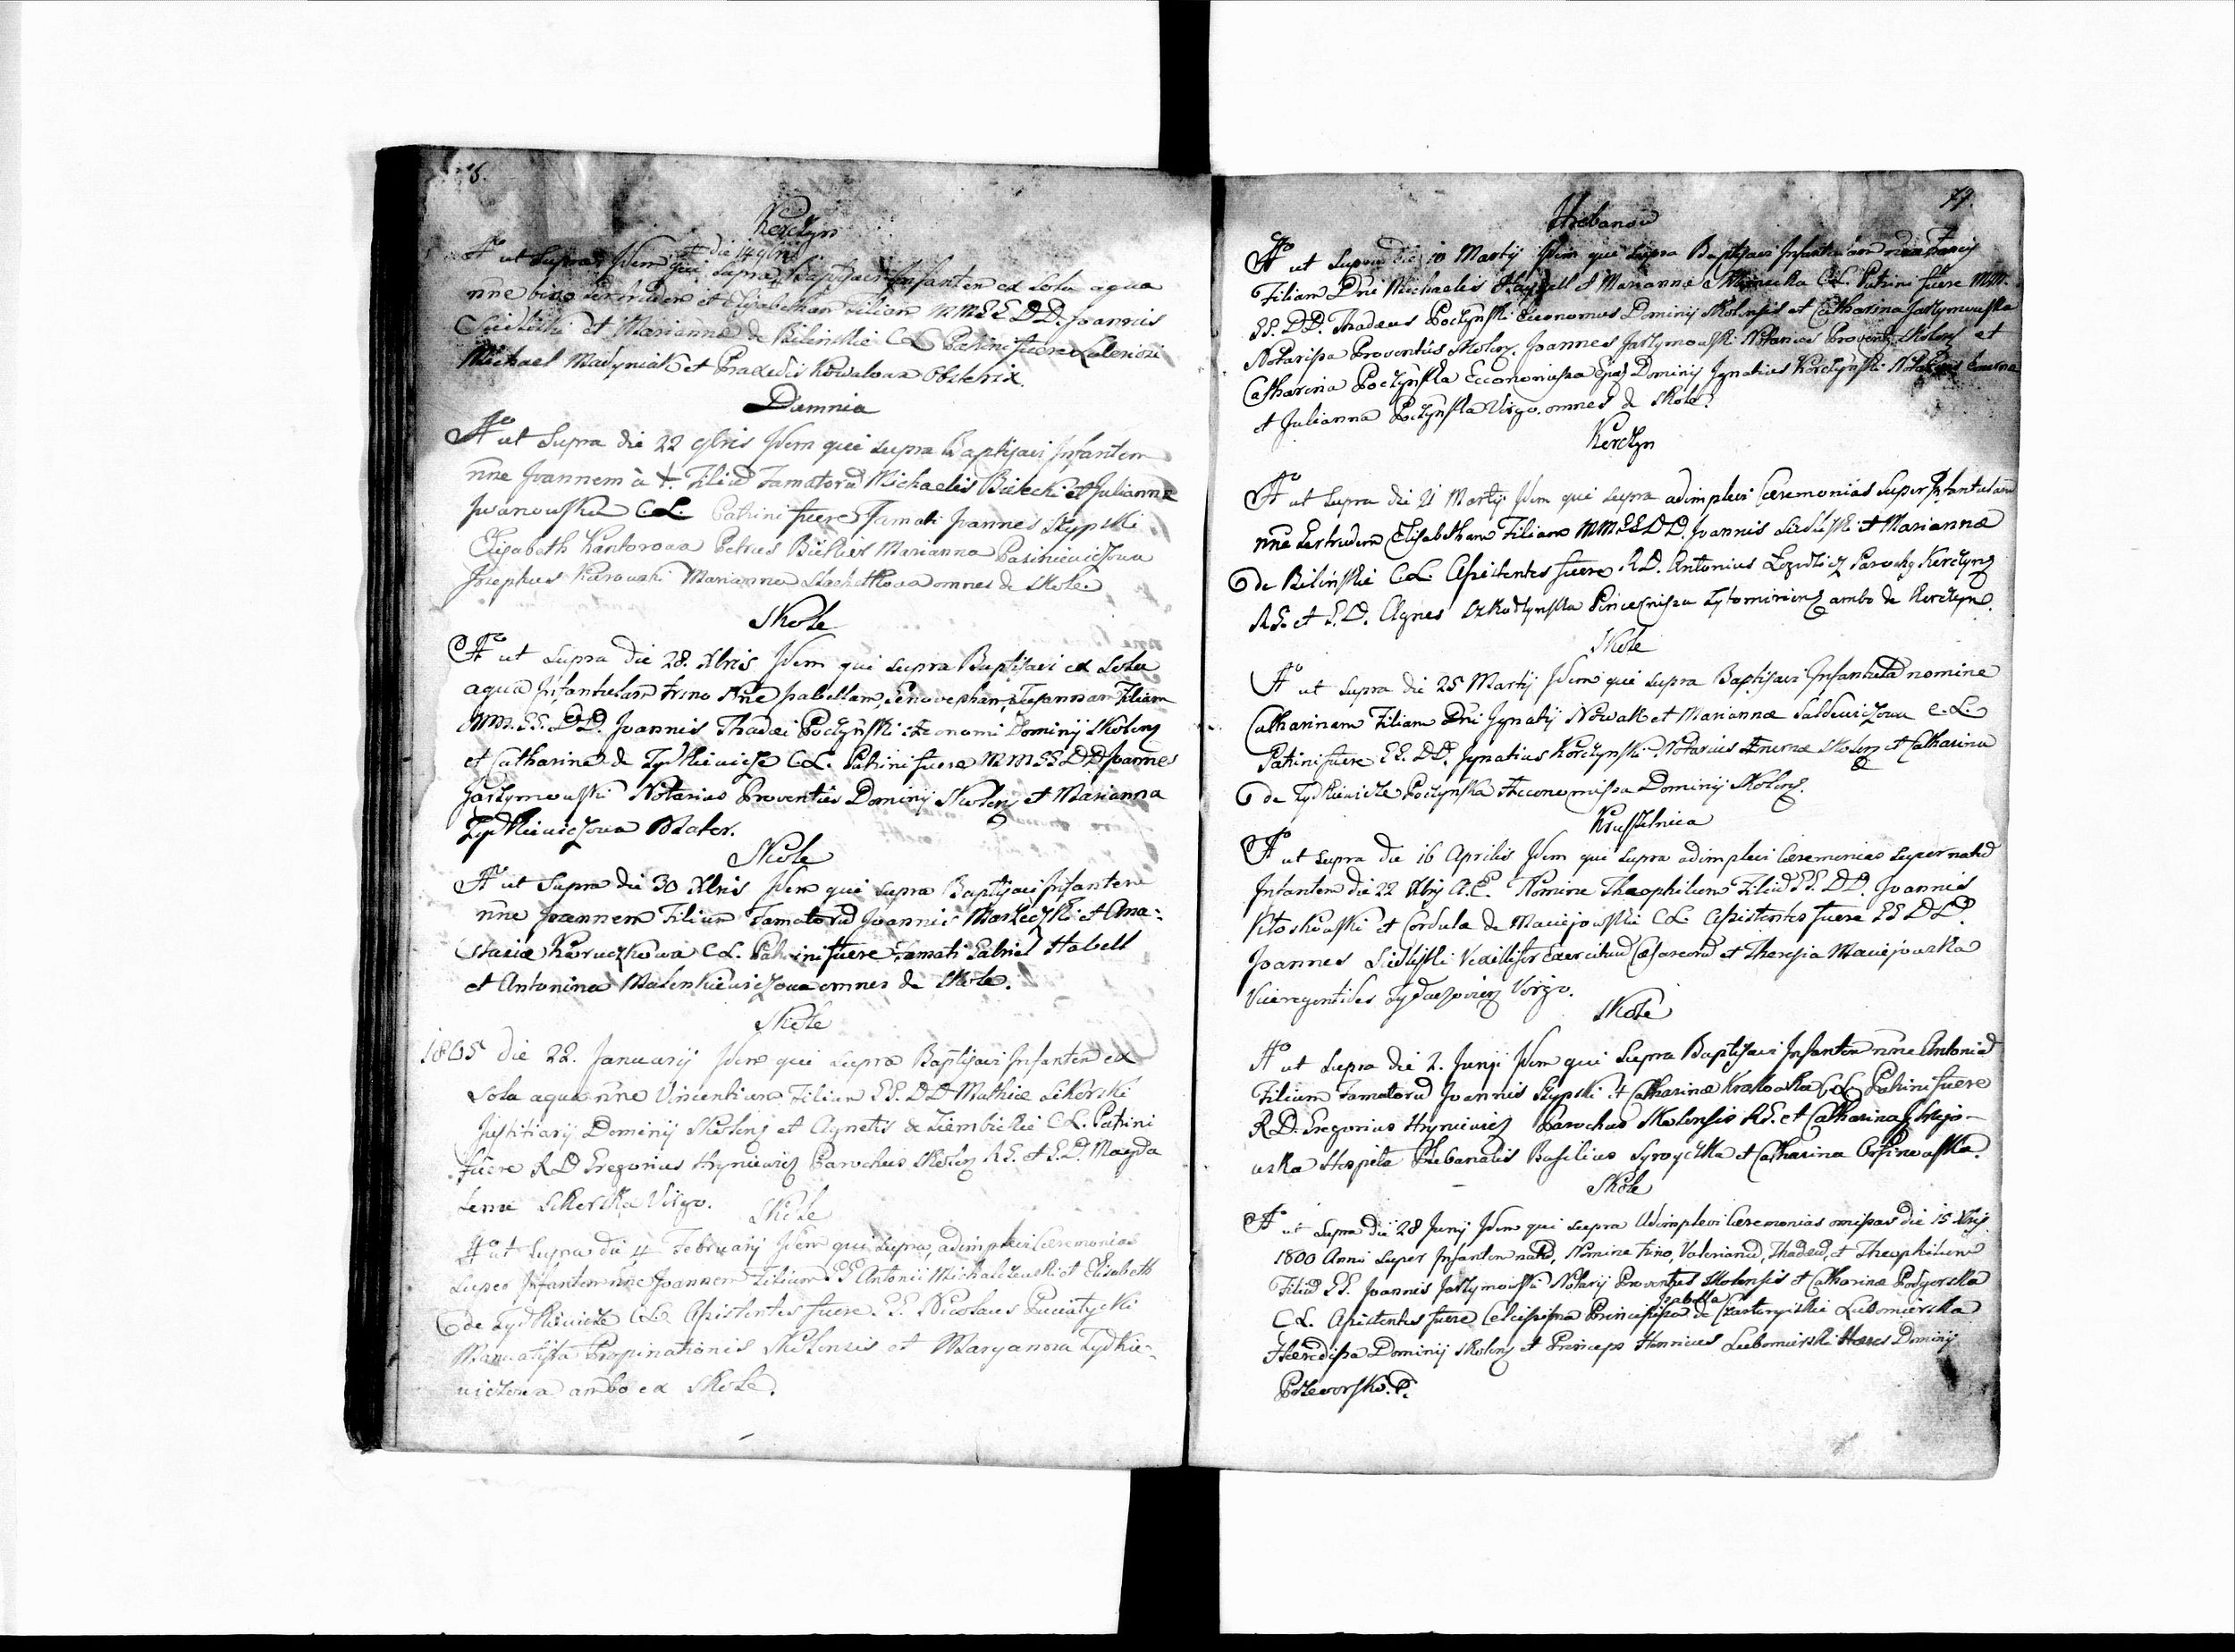 Kerczyn
Aº ut supra Idem qui supra die 14 9bris Baptisavi Infantem ex sola aqua
nne bino Gertrudem et Elisabetham Filiam MM EE DD. Joannis
Siedliski et Mariannæ de Bilinskie CL Patrini fuere Laboriosi
Michael Madyniak et Praxedis Kowalowa Obsterix.
Demnia
Aº ut Supra die 22 9bris Idem qui supra Baptisavi Infantem
nne Joannem à +. Filiũ Famatorũ Michaelis Bielecki et Julianna
Iwanowska C.L. Patrini fuere Famati Joannes Skypski
Elisabeth Kantorowa Petrus Marianna Pasikiewiczowa
Josephus Marianna omnes de Skole.
Skole
Aº ut supra die 28. Xbris Idem qui supra Baptisavi ex sola
aqua Infantulam trino Nne Isabellam, Genovepham, Susannam Filiam
MM. EE. DD. Joannis Thadæi Poczyński Æconomi Dominij Skolens
et Catharinæ de Zydkiewicze C.L. Patrini fuere MM EE DD Joannes
Jaszymowski Notarius Proventus Dominij Skolens et Marianna
Zydkiewiczowa Mater.
Skole
Aº ut Supra die 30 Xbris Idem qui supra Baptisavi Infantem
nne Joannem Filium Famatorũ Joannis et Ana:
stasiæ C.L. Patrini fuere Famati Gabriel Habell
et Antonina Malenkiewiczowa omnes de Skole.
Skole
1805 die 22. Januarij Idem qui supra Baptisavi Infantem ex
sola aqua nne Vincentium Filium EE. DD Mathiæ Sikorski
Justitiarij Dominij Skolens et Agnetis de Ziembickie C.L. Patrini
fuere R.D Gregorius Hryniewicz Parochus Skolens R.G. et G.D. Magda
lena Sikorska Virgo.
Skole
Aº ut supra die 4 Februarij Idem qui supra, adimplevi Cæremonias
super Infantem nne Joannem Filium GG Antonii Michalczewski et Elisabeth
de Zydkiewicze C.L. Assistentes fuere. G.G. Nicolaus Puciatycki
Manuatista Propinationis Skolensis et Maryanna Zydkie-
wiczowa ambo ex Skole.
79.
Hrebenow
Aº ut Supra die 10 Martij Idem qui supra Baptisavi Infantulam
Filiam Dni Michaelis et Mariannæ C.L. Patrini fuere MM.
GG. DD. Thadæus Poczyński Œconomus Dominij Skolensis et Catharina Jaszymowska
Notarissa Proventus Skolens. Joannes Jaszymowski Notarius Proventus Skolens et
Catharina Poczyńska Œconomissa Ejus Dominij Ignatius Korczyński Notarius
et Julianna Poczyńska Virgo. omnes de Skole.
Kerczyn
Aº ut supra die 21 Martij Idem qui supra adimplevi Cæremonias super Infantulam
nne Gertrudem Elisabetham Filiam MM EE DD. Joannis Siedliski et Mariannæ
de Bilińskie C.L. Assistentes fuere R.D. Antonius Parochus Kerczyns
R.G. et G.D. Agnes Pincernissa ambo de Kerczyn.
Skole
Aº ut supra die 25 Martij Idem qui supra Baptisavi Infantulã nomine
Catharinam Filiam Dni Ignatij Nowak et Mariannæ C.L.
Patrini fuere GG. DD. Ignatius Korczyński Notarius Skolens et Catharina
de Zydkiewicze Poczyńska Æconomissa Dominij Skolens.
Kruszelnica
Aº ut supra die 16 Aprilis Idem qui supra adimplevi Cæremonias super natũ
Infantem die 22 Xbris A.P. Nomine Theophilum Filiũ GG. DD. Joannis
Witoskowski et Cordulæ de Maciejowskie C.L. Assistentes fuere GG D.D.
Joannes Siedliski Vexillifer Exercituũ Cæsareorũ et Theresia Maciejowska
Viceregentides Virgo.
Skole
Aº ut Supra die 2. Junji Idem qui supra Baptisavi Infantem nne Antoniũ
Filium Famatorũ Joannis Skypski et Catharinæ C.L. Patrini fuere
R.D. Gregorius Hryniewicz Parochus Skolensis R.G. et Catharina
Basilius Syroyczka et Catharina
Skole
Aº ut supra die 28 Junij Idem qui supra Adimplevi Cæremonias omissas die 15 Xbris
1800 Anni super Infantem natũ, Nomine trino, Valerianũ, Thadeũ, et Theophilum
Filiũ GG. Joannis Jaszymowski Notarij Proventus Skolensis et Catharinæ Podgorska
C.L. Assistentes fuere Celsissima Principissa Isabella de Czartoryiskie Lubomirska
Hæredissa Dominij Skolens et Princeps Henricus Lubomirski Hæres Dominij
Przeworsko. P.